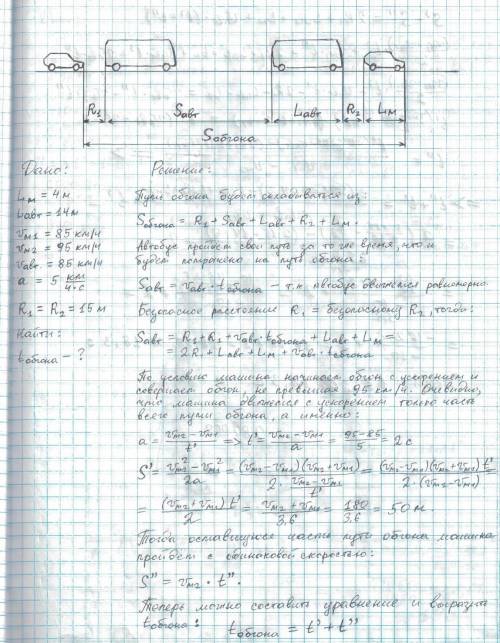 R₁ Sавт Lавт R₂ Lм
Sобгона
Дано: Решение:
Lм = 4 м
Lавт = 14 м
vм1 = 85 км/ч
vм2 = 95 км/ч
vавт. = 85 км/ч
a = 5 км/ч·с
R₁ = R₂ = 15 м
Найти:
tобгона – ?
Путь обгона будет складываться из:
Sобгона = R₁ + Sавт + Lавт + R₂ + Lм.
Автобус пройдет свой путь за то же время, что и
будет потрачено на путь обгона:
Sавт = vавт · tобгона – т.к. автобус движется равномерно.
Безопасное расстояние R₁ = безопасному R₂, тогда:
Sавт = R₁ + R₁ + vавт · tобгона + Lавт + Lм =
= 2R₁ + Lавт + Lм + vавт · tобгона
По условию машина начинает обгон с ускорением и
совершает обгон, не превышая 95 км/ч. Очевидно,
что машина движется с ускорением только часть
всего пути обгона, а именно:
a = (vм2 − vм1)/t' => t' = (vм2 − vм1)/a = (95 − 85)/5 = 2 с
S' = (vм2² − vм1²)/2a = (vм2 − vм1)(vм2 + vм1)/(2 · (vм2 − vм1)/t') = (vм2 − vм1)(vм2 + vм1) t'/(2 · (vм2 − vм1))
= (vм2 + vм1) t'/2 = (vм2 + vм1)/3,6 = 180/3,6 = 50 м.
Тогда оставшуюся часть пути обгона машина
пройдет с одинаковой скоростью:
S'' = vм2 · t''.
Теперь можно составить уравнение и выразить
tобгона: tобгона = t' + t''